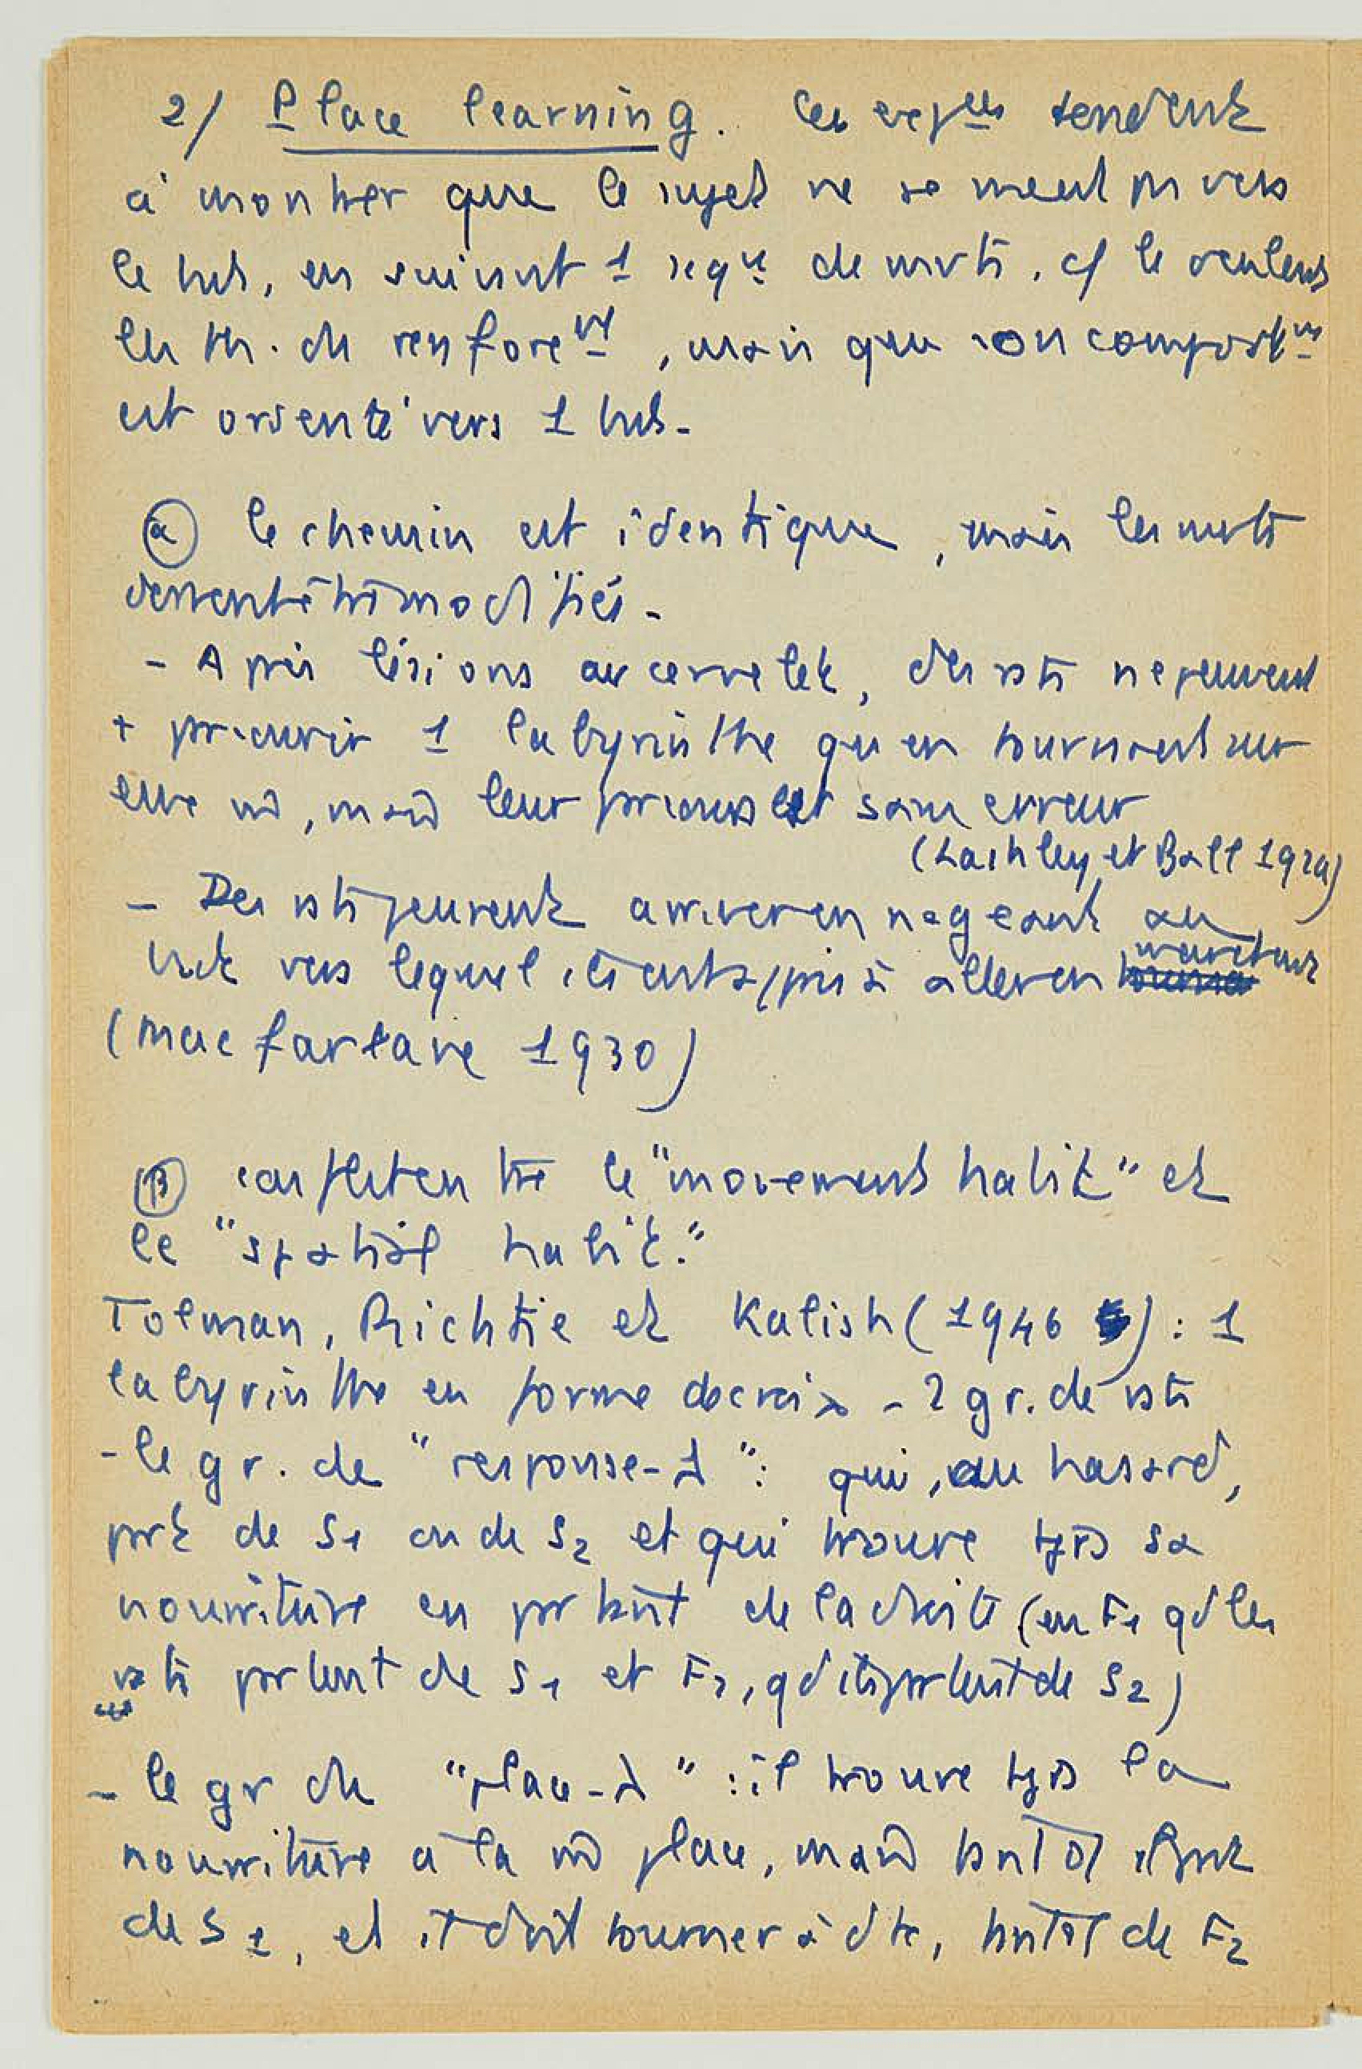 2/ Place learning. Ces exp<sup>ces</sup> tendent
à montrer que le sujet ne se meut pas vers
le but, en suivant 1 séq<sup>ce</sup> de mvts, cf le veulent
les th. du renforc<sup>nt</sup>, mais que son comport<sup>nt</sup>
est orienté vers 1 but.
(a) le chemin est identique, mais les mvts
modifiés.
- Après lésions au cervelet, des rats ne peuvent
+ parcourir 1 labyrinthe qu'en tournant sur
eux m̂, mais leur parcours est sans erreur
(Lashley et Ball 1929)
- Des rats peuvent arriver en nageant au
but vers lequel ils ont appris à aller en marchant
(Mac Farlane 1930)
(B) conflit entre le "movement habit" et
le "spatial habit."
Tolman, Richtie et Kalish (1946) : 1
labyrinthe en forme de croix - 2 gr. de rats
- le gr. de "response-λ" : qui, au hasard,
part de S1 ou de S2 et qui trouve tjrs sa
nourriture en partant de la droite (en F1 qd les
rats partent de S1 et F2, qd ils partent de S2)
- le gr du "place-λ" : il trouve tjrs la
nourriture à la m̂ place, mais tantôt il part
de S1, et il doit tourner à dte, tantôt de F2